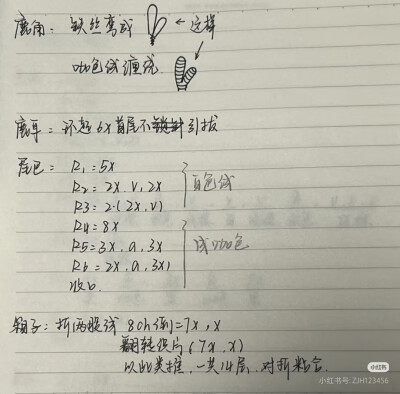 鹿角：铁丝弯成 ← 这样
咖色线缠绕
鹿耳：环起6X首尾不 引拔
尾巴：R1=5X
R2=2X,V,2X
R3=2·(2X,V)
白色线
R4=8X
R5=3X,A,3X
R6=2X,A,3X,
浅咖色
收口
鞋子：拆两股线 8ch(到=7X,X
翻转织片(7X,X)
以此类推,一共14层,对折粘合.
小红书
小红书号:ZJH123456